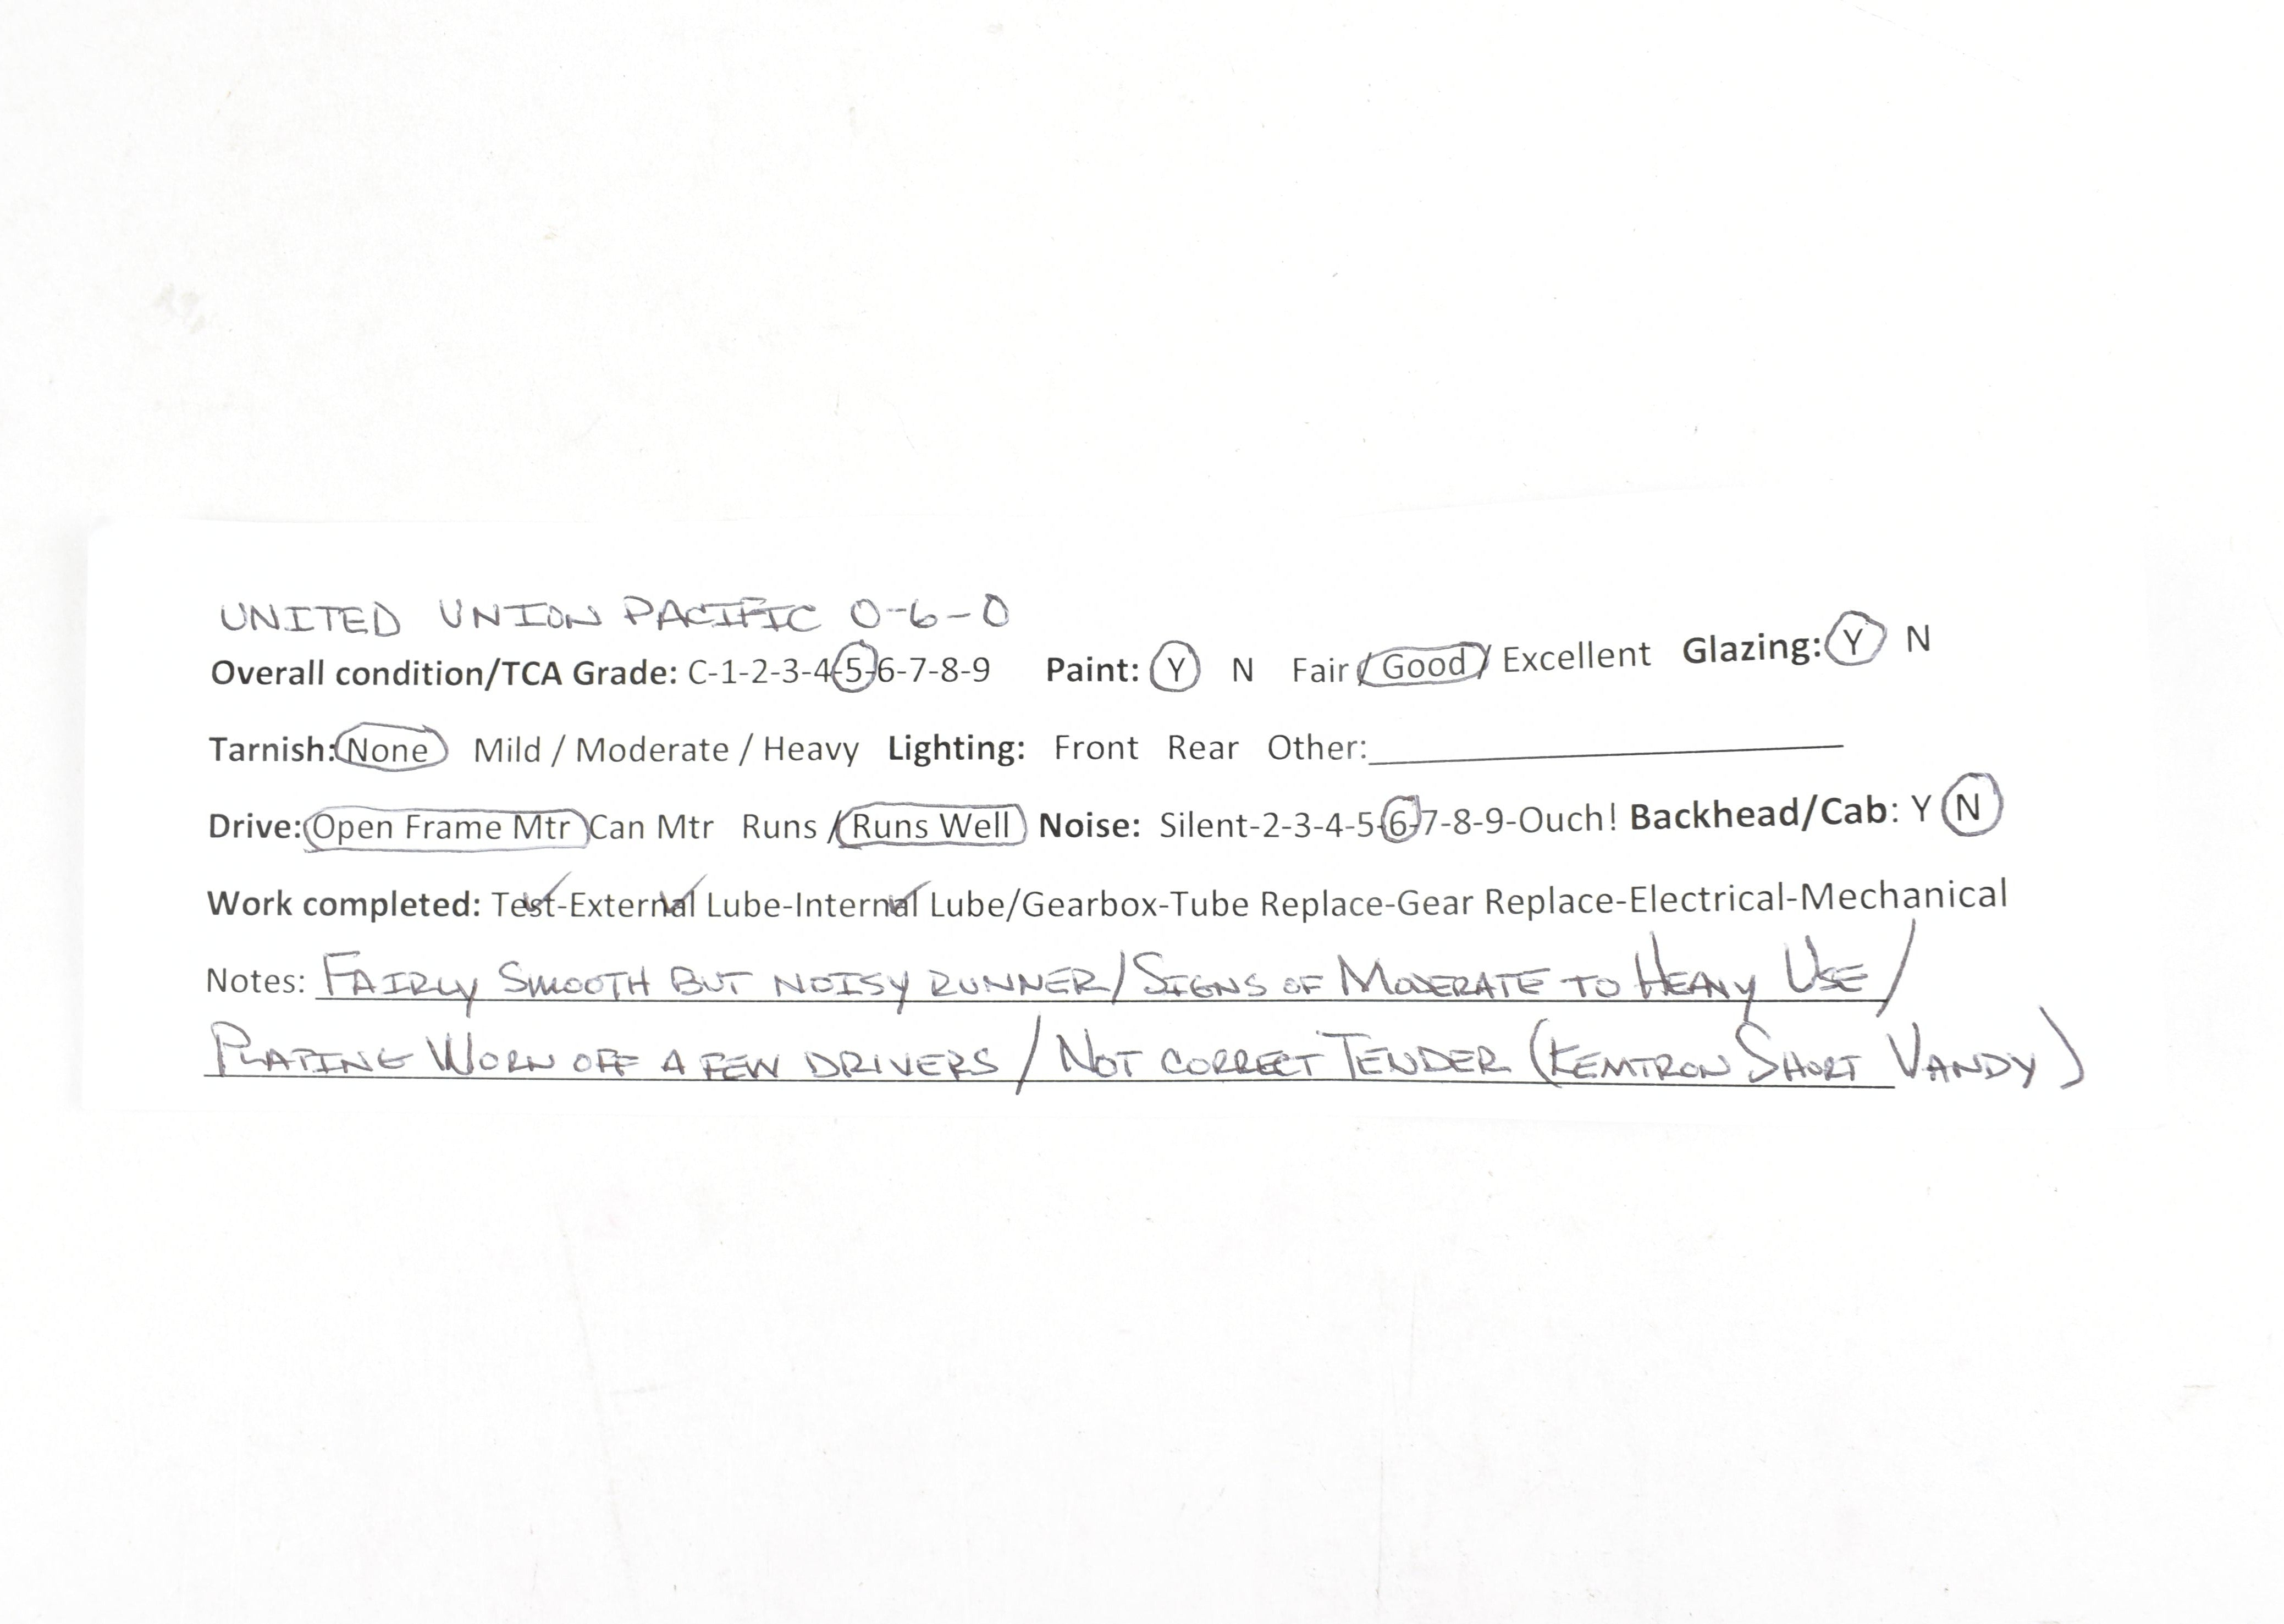 UNITED UNION PACIFIC 0-6-0
Overall condition/TCA Grade: C-1-2-3-4-5-6-7-8-9 Paint: Y N Fair / Good / Excellent Glazing: Y N
Tarnish: None Mild / Moderate / Heavy Lighting: Front Rear Other:
Drive: Open Frame Mtr Can Mtr Runs / Runs Well Noise: Silent-2-3-4-5-6-7-8-9-Ouch! Backhead/Cab: Y N
Work completed: Test-External Lube-Internal Lube/Gearbox-Tube Replace-Gear Replace-Electrical-Mechanical
Notes: FAIRLY SMOOTH BUT NOISY RUNNER/SIGNS OF MODERATE TO HEAVY USE/
PLATING WORN OFF A FEW DRIVERS/NOT CORRECT TENDER (KEMTRON SHORT VANDY)